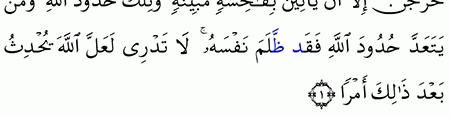 خْرُجْنَ إِلَّآ أَن يَأْتِينَ بِفَـٰحِشَةٍ مُّبَيِّنَةٍ ۚ وَتِلْكَ حُدُودُ ٱللَّهِ ۚ وَمَن
يَتَعَدَّ حُدُودَ ٱللَّهِ فَقَد ظَّلَمَ نَفْسَهُۥ ۚ لَا تَدْرِى لَعَلَّ ٱللَّهَ يُحْدِثُ
بَعْدَ ذَٰلِكَ أَمْرًا ﴿١﴾